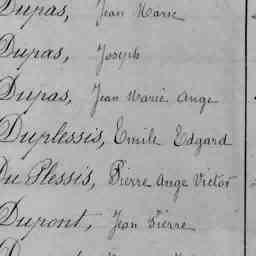 Dupas, Jean Marie
Dupas, Joseph
Dupas, Jean Marie Ange
Duplessis, Emile Edgard
Du Plessis, Pierre Ange Victor
Dupont, Jean Pierre